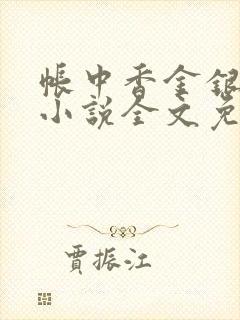 帳中香金銀
小說全文免
賈振江